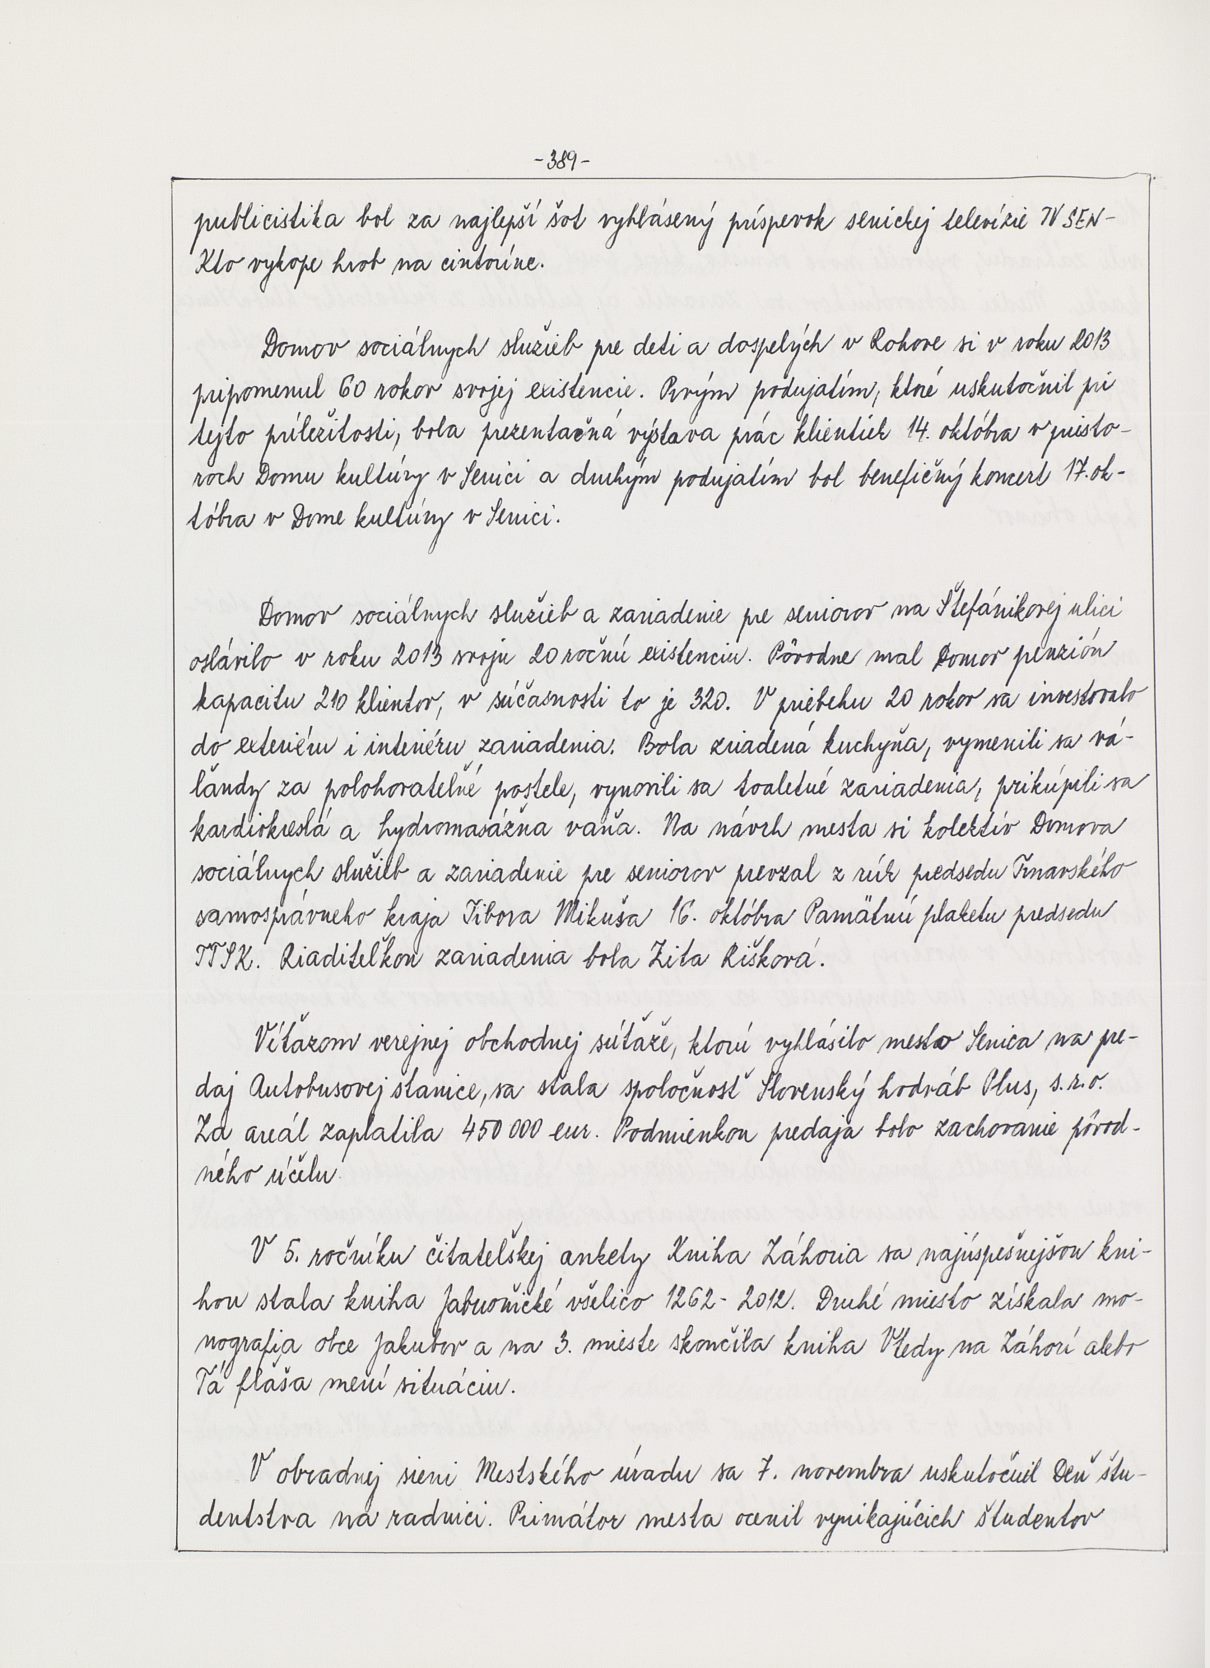 -389-
publicistika bol za najlepší šot vyhlásený príspevok senickej televízie TV SEN-
Kto vykope hrob na cintoríne.
Domov sociálnych služieb pre deti a dospelých v Rohove si v roku 2013
pripomenul 60 rokov svojej existencie. Prvým podujatím, ktoré uskutočnil pri
tejto príležitosti, bola prezentačná výstava prác klientiek 14. októbra v priesto-
roch Domu kultúry v Senici a druhým podujatím bol benefičný koncert 17. ok-
tóbra v Dome kultúry v Senici.
Domov sociálnych služieb a zariadenie pre seniorov na Štefánikovej ulici
oslávilo v roku 2013 svoju 20 ročnú existenciu. Pôvodne mal Domov penzión
kapacitu 210 klientov, v súčasnosti to je 320. V priebehu 20 rokov sa investovalo
do exteriéru i interiéru zariadenia. Bola zriadená kuchyňa, vymenili sa vá-
ľandy za polohovateľné postele, vynovili sa toaletné zariadenia, prikúpili sa
kardiokreslá a hydromasážna vaňa. Na návrh mesta si kolektív Domova
sociálnych služieb a zariadenie pre seniorov prevzal z rúk predsedu Trnavského
samosprávneho kraja Tibora Mikuša 16. októbra Pamätnú plaketu predsedu
TTSK. Riaditeľkou zariadenia bola Zita Rišková.
Víťazom verejnej obchodnej súťaže, ktorú vyhlásilo mesto Senica na pre-
daj Autobusovej stanice, sa stala spoločnosť Slovenský hodváb Plus, s.r.o.
Za areál zaplatila 450 000 eur. Podmienkou predaja bolo zachovanie pôvod-
ného účelu.
V 5. ročníku čitateľskej ankety Kniha Záhoria sa najúspešnejšou kni-
hou stala kniha Jabloničké všelico 1262 - 2012. Druhé miesto získala mo-
nografia obce Jakubov a na 3. mieste skončila kniha Vtedy na Záhorí alebo
Tá fľaša mení situáciu.
V obradnej sieni Mestského úradu sa 7. novembra uskutočnil Deň štu-
dentstva na radnici. Primátor mesta ocenil vynikajúcich študentov